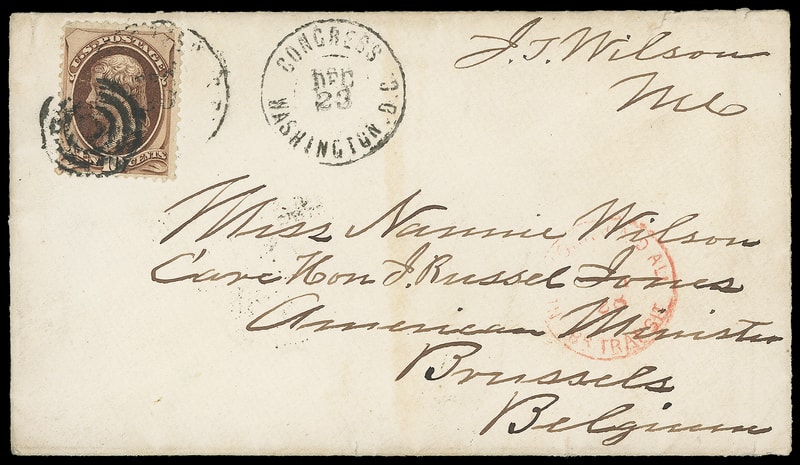 U.S. POSTAGE
CENTS
CONGRESS D.C.
DEC
23
WASHINGTON
J. T. Wilson
MC
Miss Nannie Wilson
Care Hon J. Russel Jones
American Minister
Brussels
Belgium
PAID ALL
TRANSIT